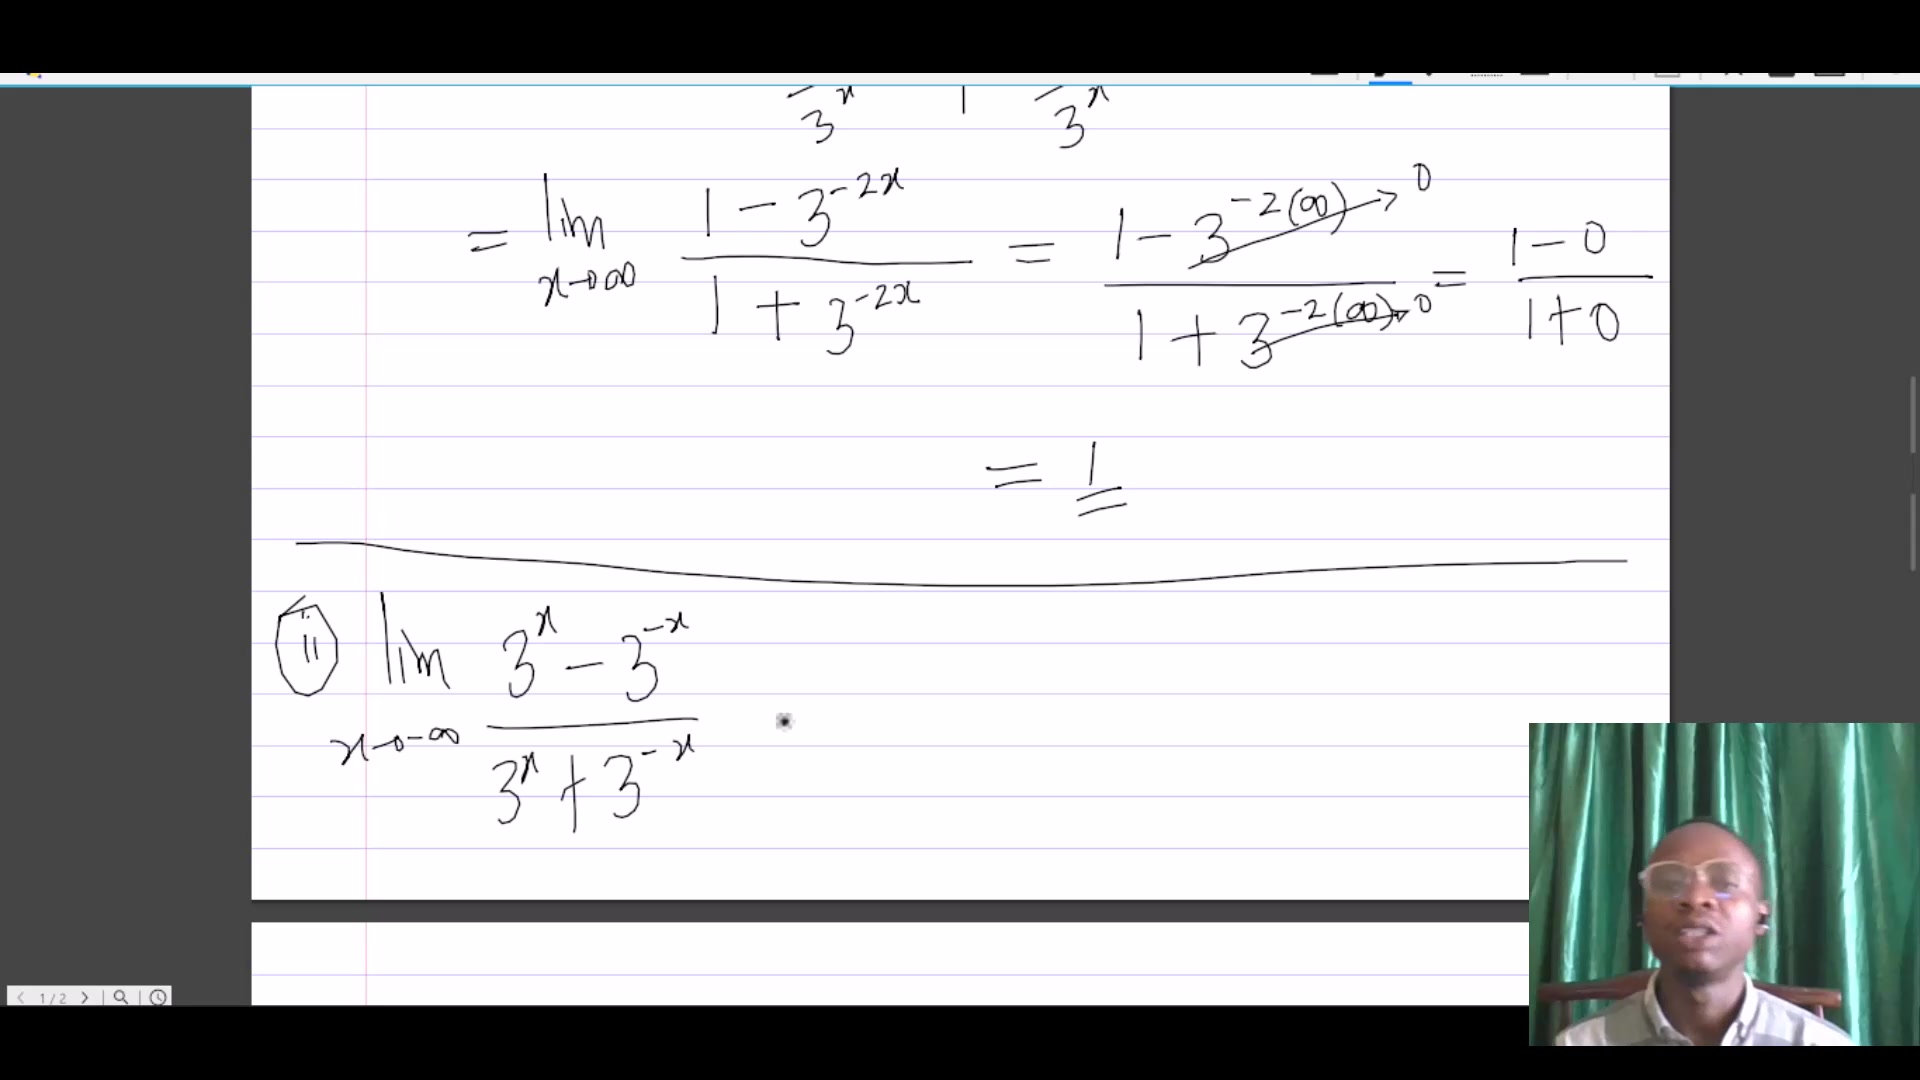 3^x 1 3^x
= lim x→∞ (1 - 3^{-2x})/(1 + 3^{-2x}) = (1 - 3^{-2(∞)} → 0)/(1 + 3^{-2(∞)} → 0) = (1 - 0)/(1 + 0)
= 1
ii lim x→-∞ (3^x - 3^{-x})/(3^x + 3^{-x})
1/2